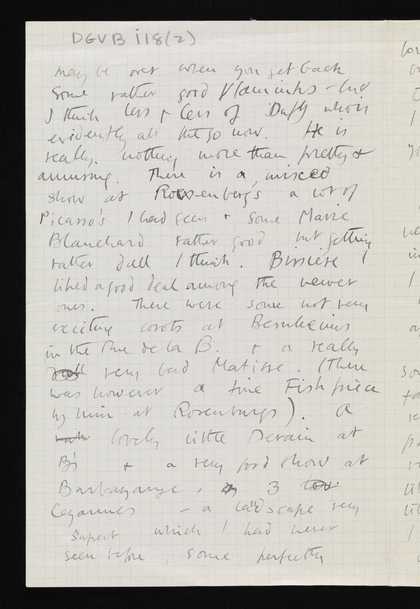 DGVB i18(2)
may be over when you get back
Some rather good Vlamincks – but
I think less & less of Dufy who is
evidently all the go now. He is
really nothing more than pretty &
amusing. There is a mixed
show at Rosenberg's a lot of
Picasso's I had seen & some Marie
Blanchard rather good but getting
rather dull I think. Bissiere I
liked a good deal among the newer
ones. There were some not very
exciting corots at Bernheims
in the Rue de la B. & a really
very bad Matisse. (There
was however a fine Fish piece
by him at Rosenburgs). A
lovely little Derain at
B's & a very good show at
Barbazange, 3
Cezannes – a landscape very
superb which I had never
seen before, some perfectly